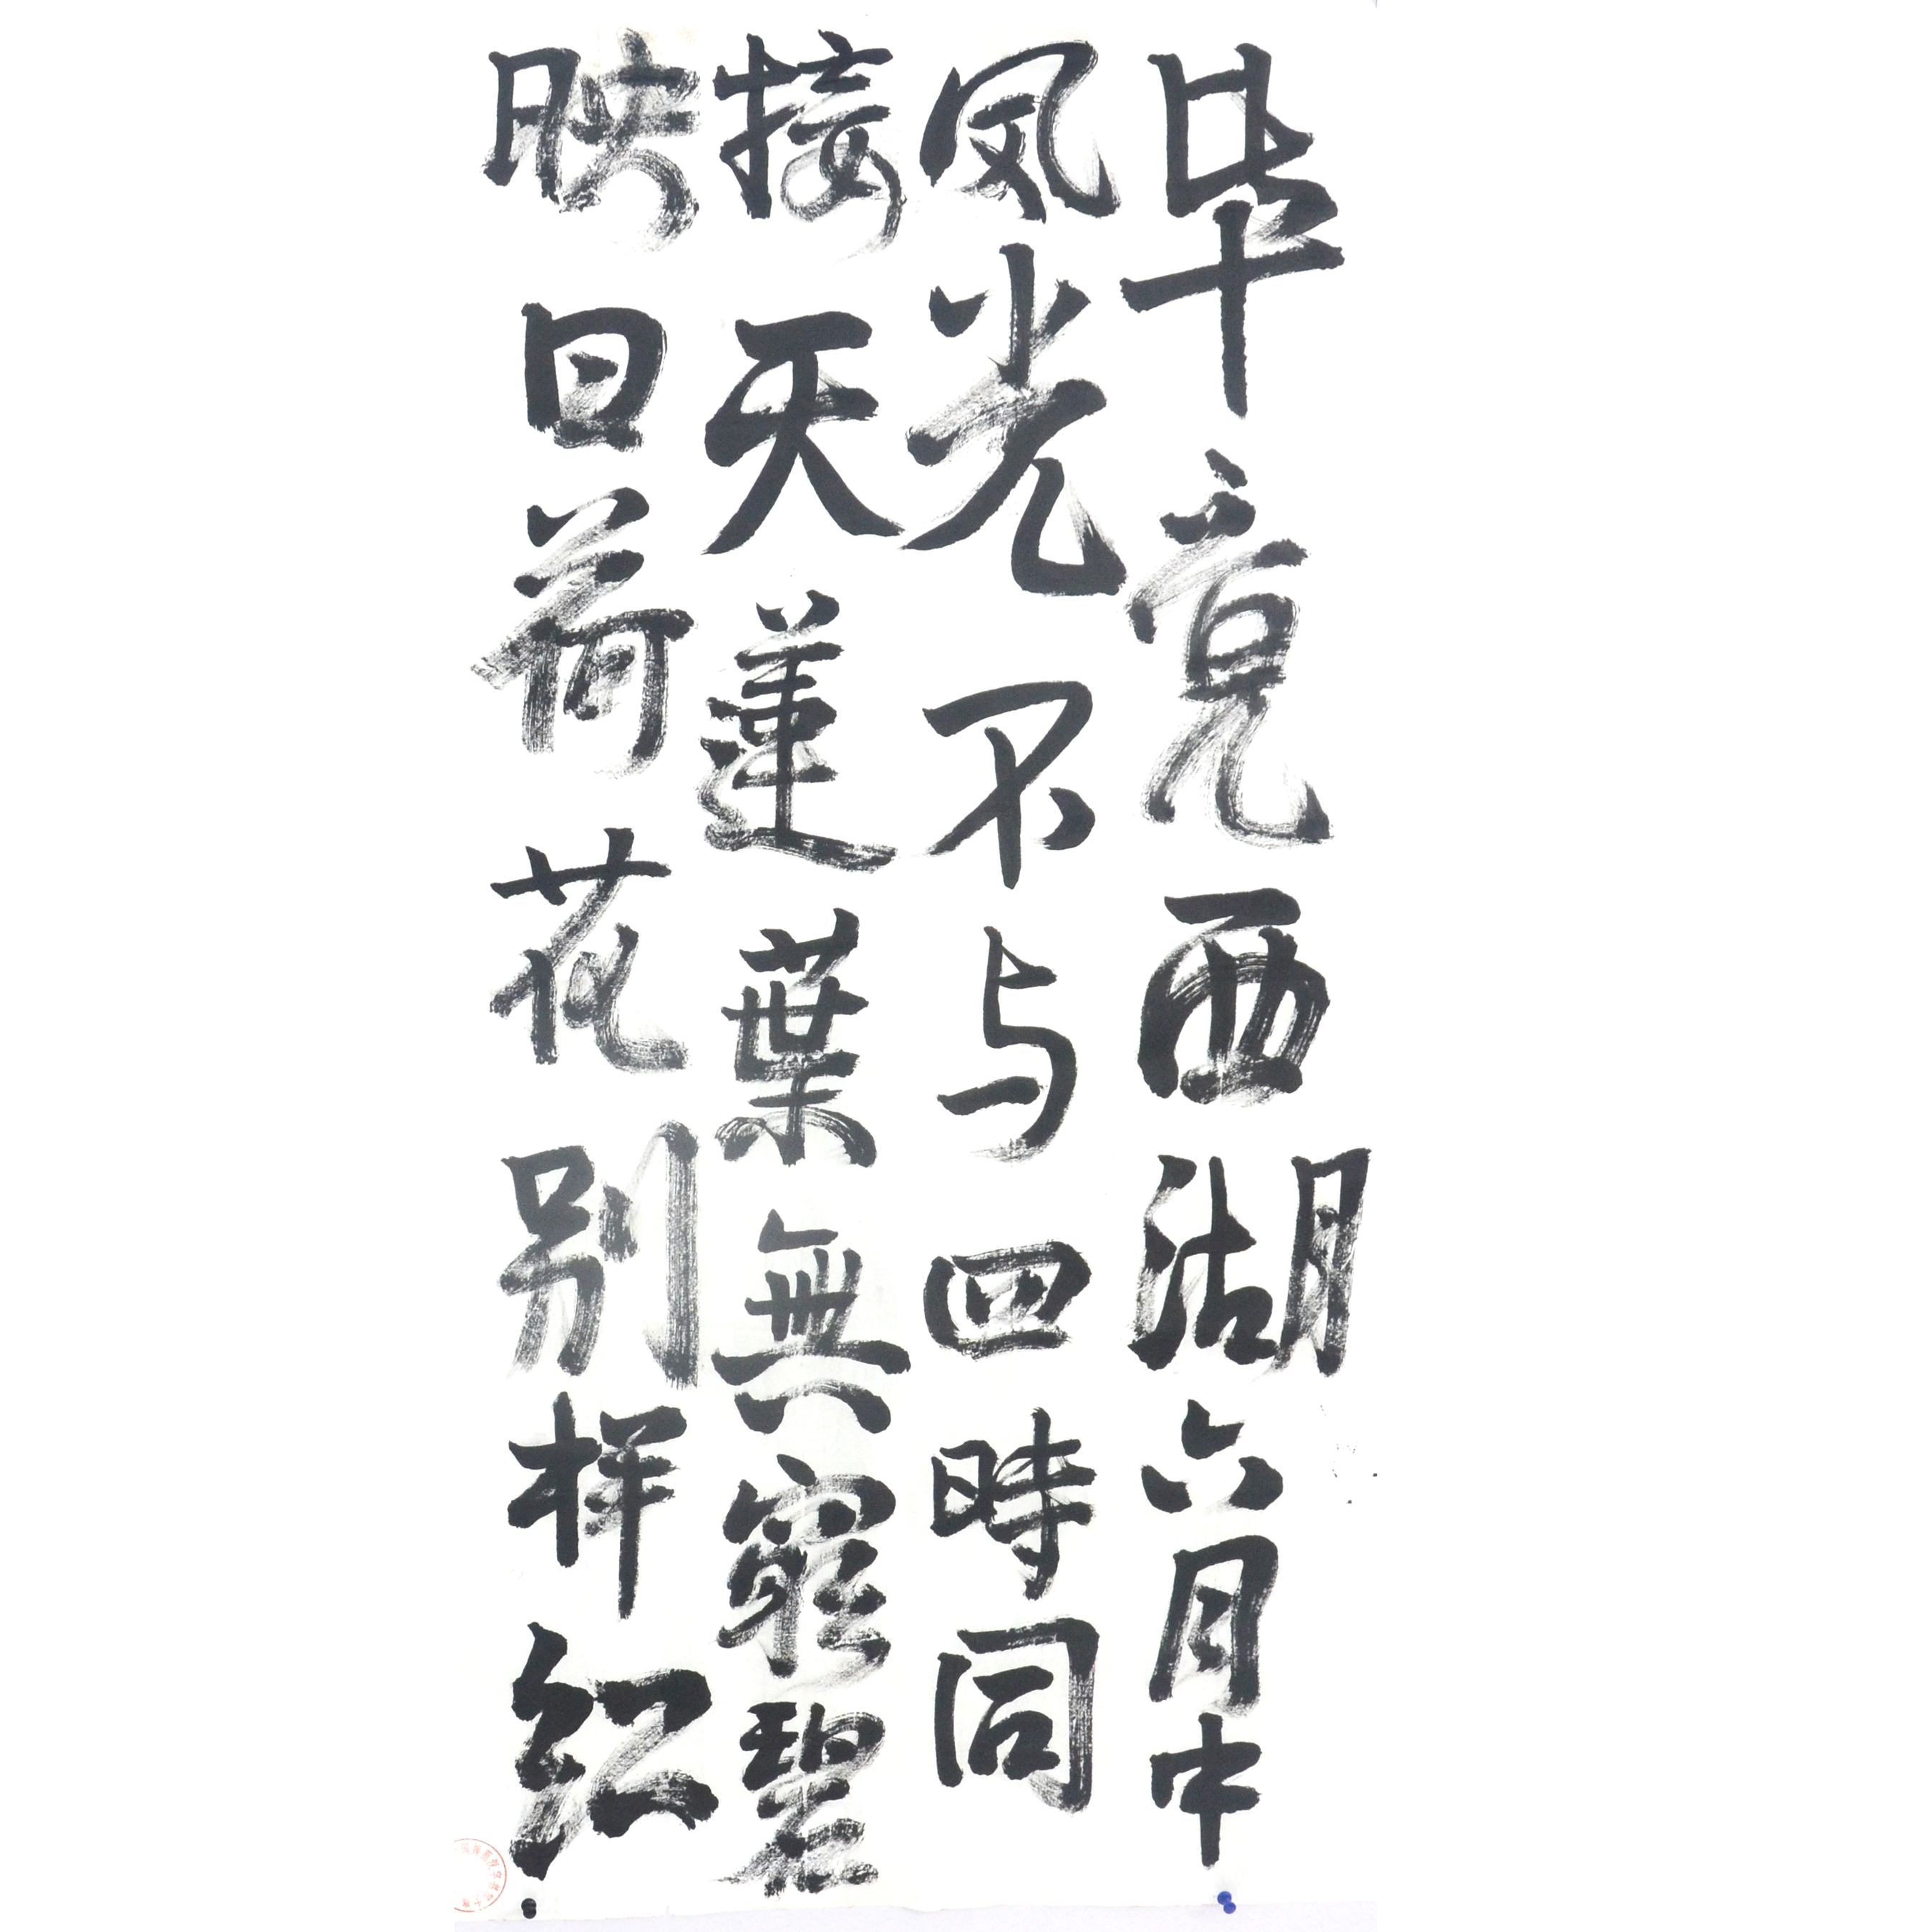 毕竟西湖六月中
风光不与四時同
接天蓮葉無窮碧
映日荷花别样红